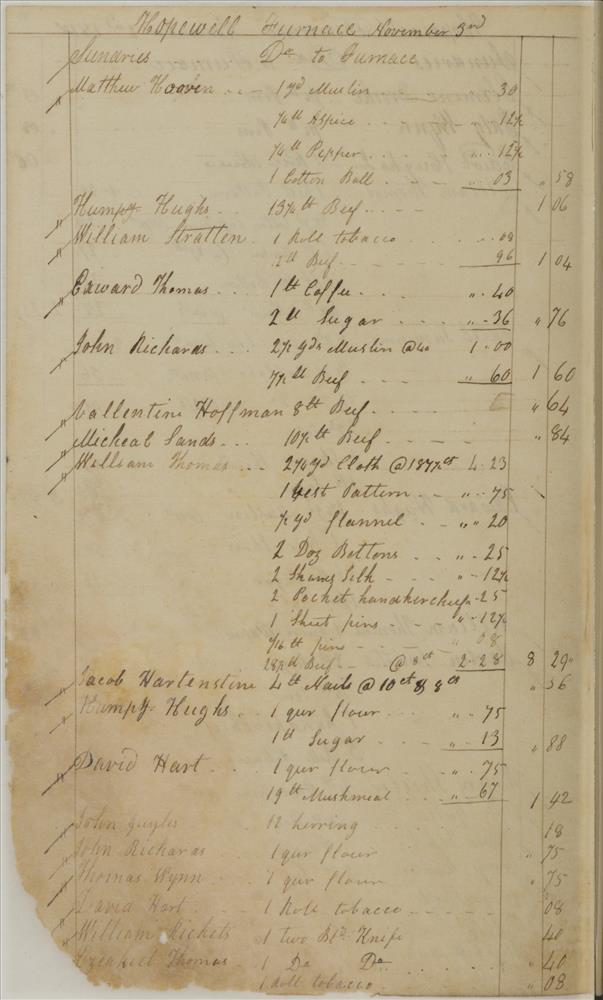 Hopewell Furnace November 3rd
Sundries Dr to Furnace
Matthew Hooven 1 yd Muslin 30
1/4 lb Aspice " 12 1/2
1/4 lb Pepper " 12 1/2
1 Cotton Ball " 03 " 58
Humpy Hughs 13 1/4 lb Beef 1 06
William Stratten 1 Roll tobacco " 08
lb Beef 96 1 04
Edward Thomas 1 lb Coffee " 40
2 lb Sugar " 36 " 76
John Richards 2 1/2 yds Muslin @ 40 1 00
7 1/2 lb Beef " 60 1 60
Vallentine Hoffman 8 lb Beef " 64
Micheal Sands 10 1/2 lb Beef " 84
William Thomas 2 1/4 yd Cloth @ 187 1/2 ct 4 23
1 Vest Pattern " 75
1/2 yd flannel " " 20
2 Doz Bottons " 25
2 Skains Silk " 12 1/2
2 Pocket handkercheifs 25
1 Sheet pins " 12 1/2
lb pins " 08
28 1/2 lb Beef @ 8 ct 2 28 8 29
Jacob Hartenstine 4 lb Nails @ 10 ct & 8 cts " 36
Humpy Hughs 1 qur flour " " 75
1 lb Sugar " 13 " 88
David Hart 1 qur flour " 75
19 lb Mushmeal " 67 1 42
John guyles 12 herring 18
John Richards 1 qur flour " 75
Thomas Wynn 1 qur flour " 75
David Hart 1 Roll tobacco 08
William Rickets 1 two Bld Knife 40
Ezekiel Thomas 1 Do Do " 40
1 Roll tobacco " 08